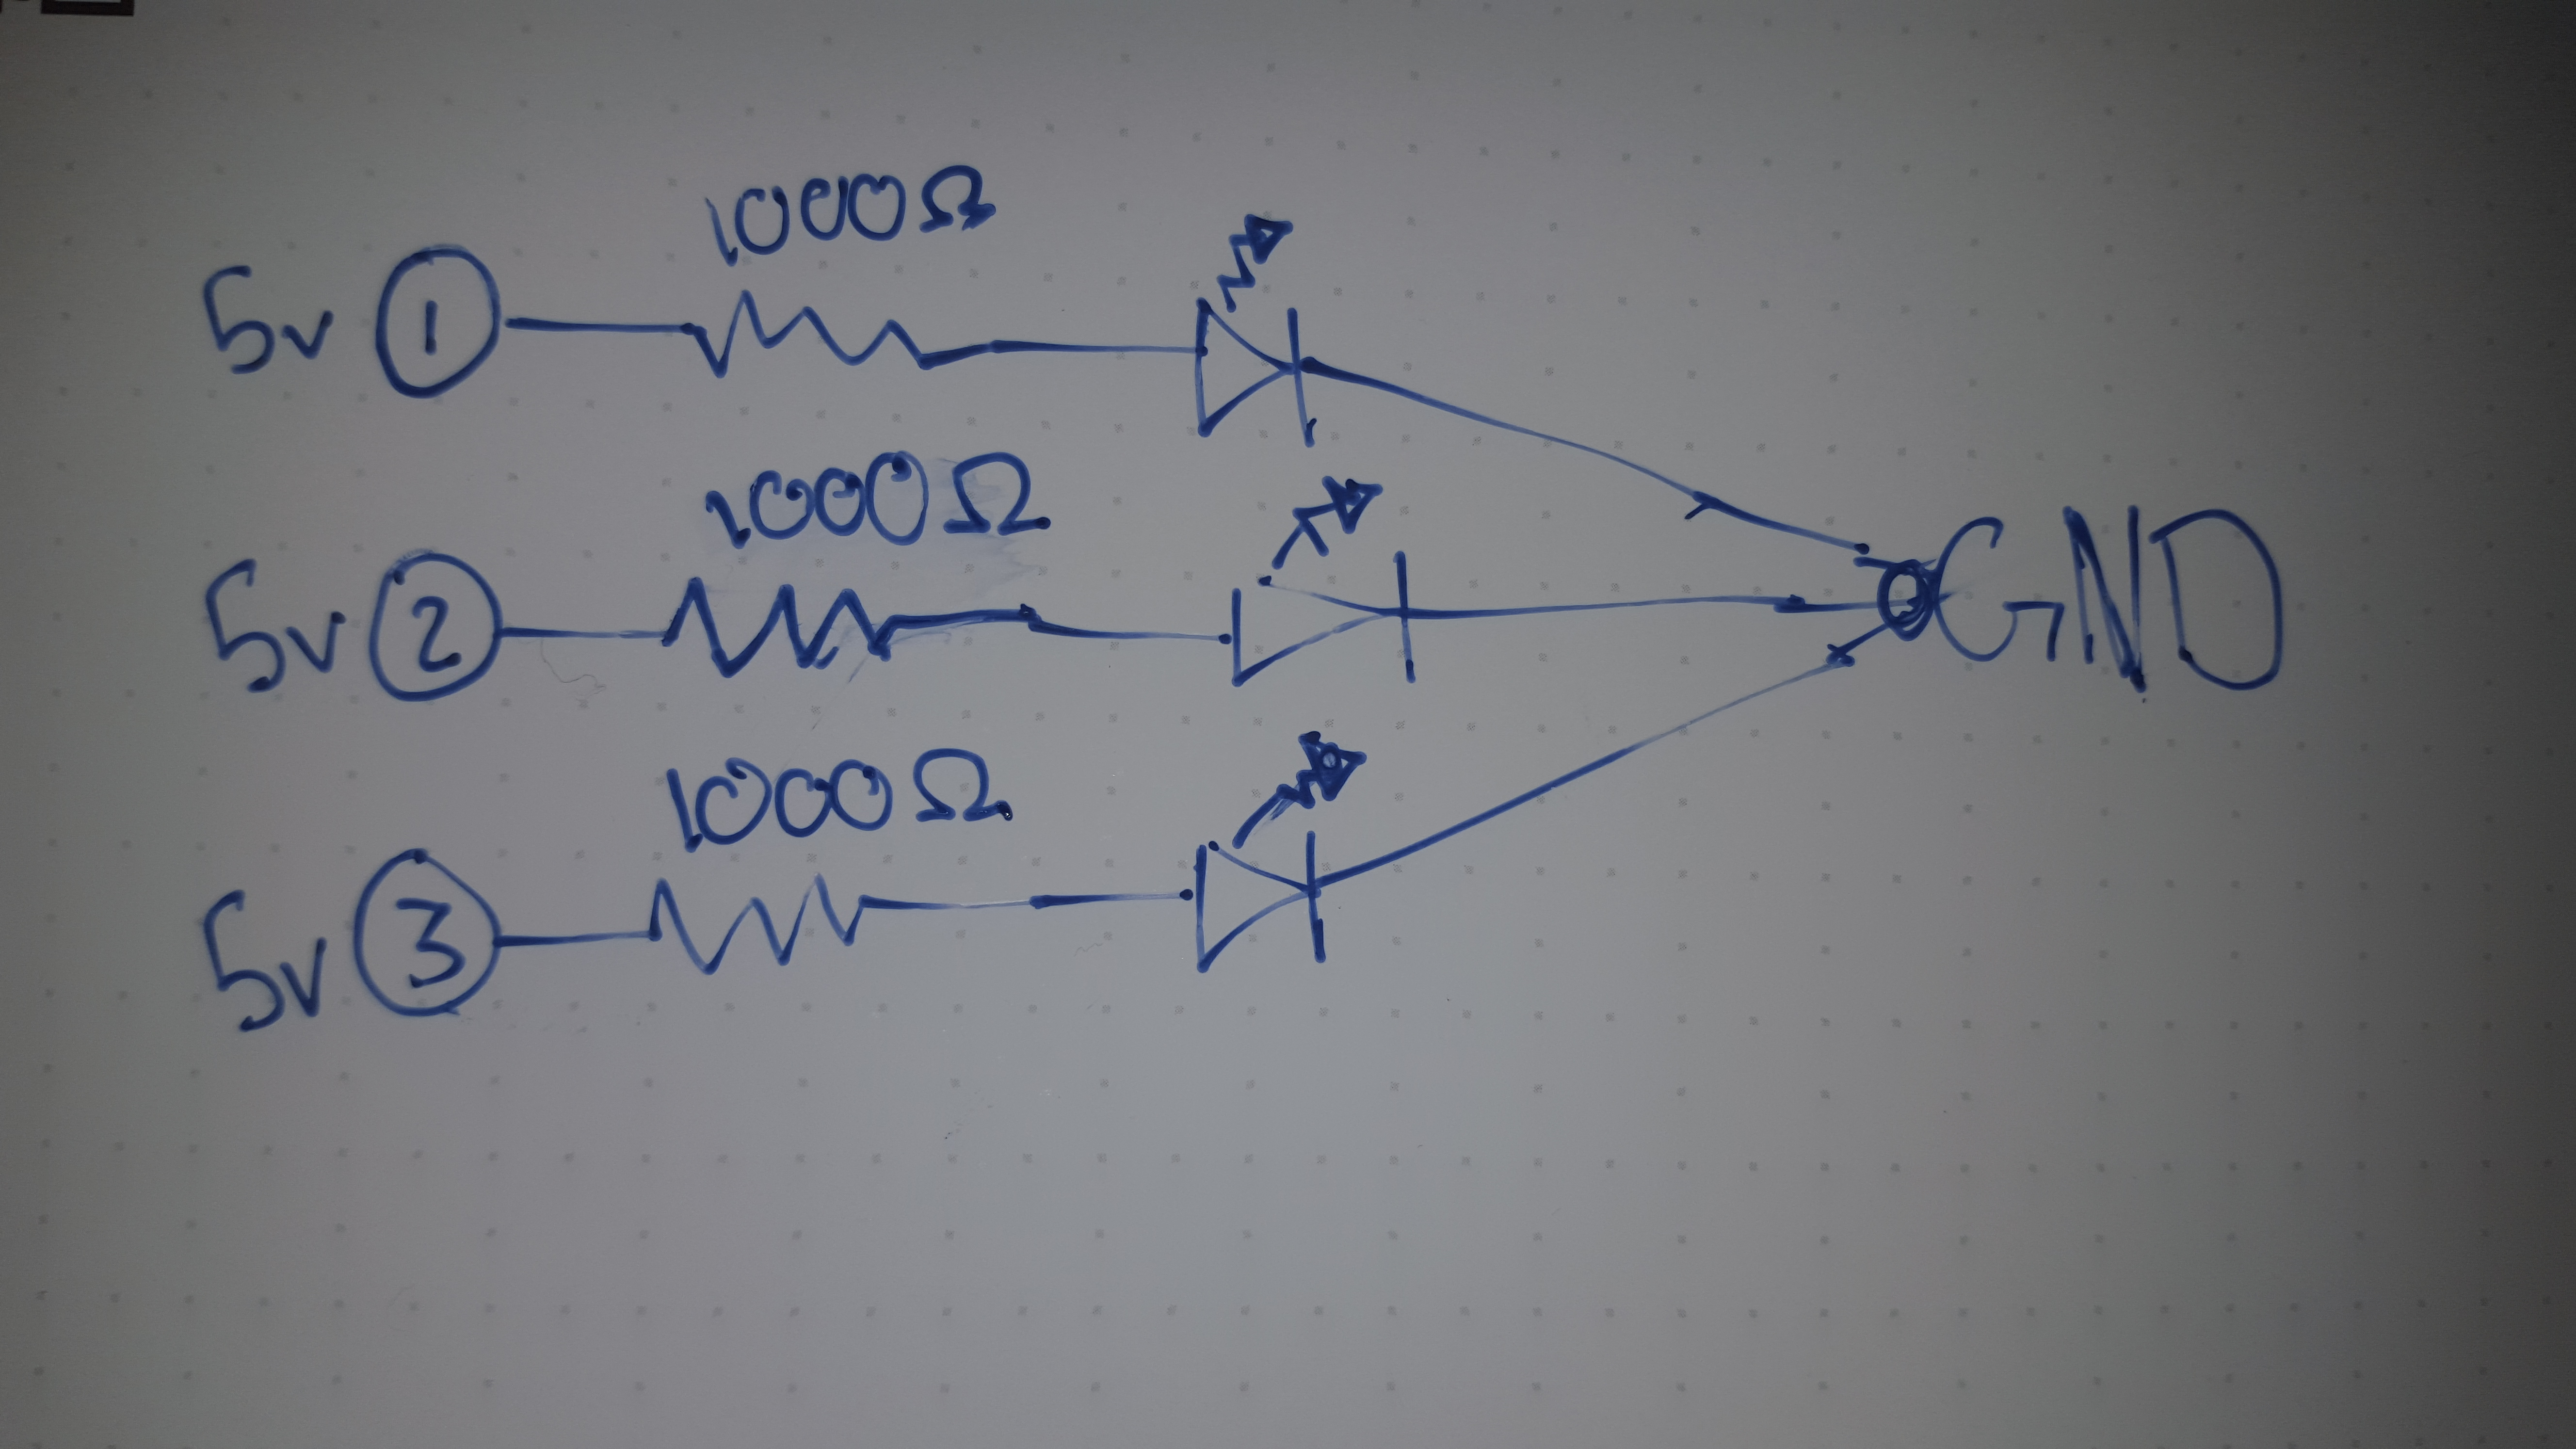 1000Ω
5V 1
1000Ω
5V 2 GND
1000Ω
5V 3